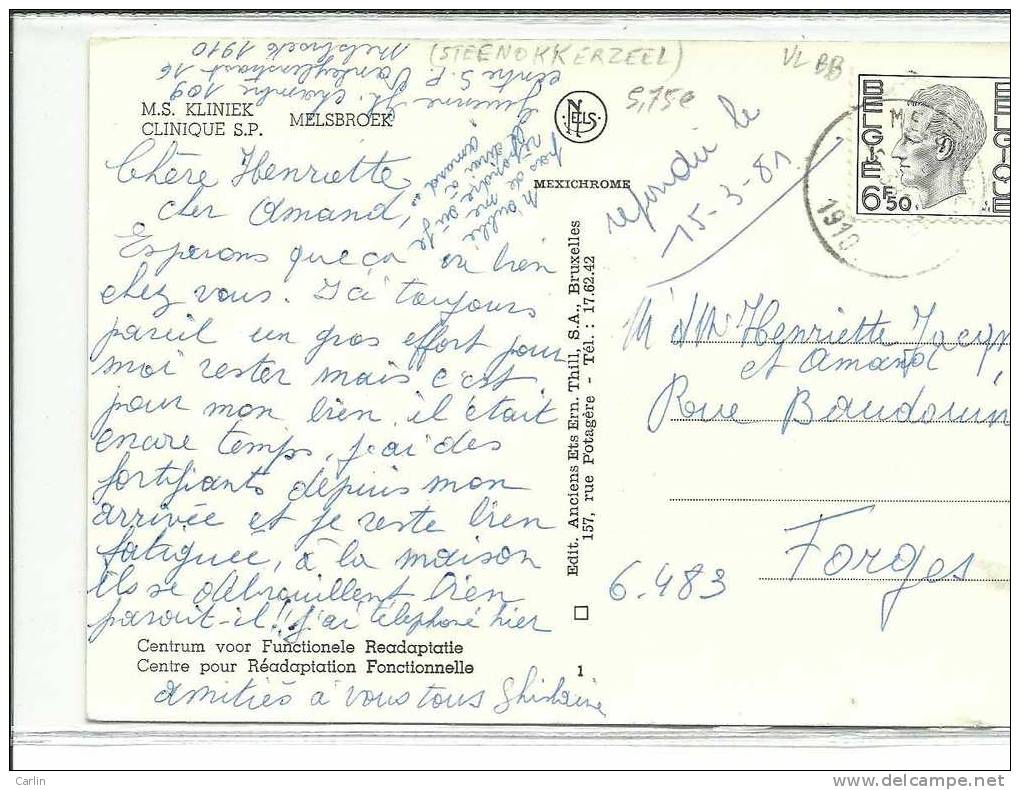 (STEENOKKERZEEL)
VL BB
5,75€
Melsbroek 1910
centre S.P.
chambre 109
M.S. KLINIEK
CLINIQUE S.P. MELSBROEK
NELS
MEXICHROME
BELGIE
BELGIQUE
6F50
1910
n'oublie
pas de me
répondre
Amand...
Chère Henriette
cher Amand,
Esperons que ça va bien
chez vous. Ici toujours
pareil un gros effort pour
moi rester mais c'est
pour mon bien il était
encore temps, j'ai des
fortifiants depuis mon
arrivée et je reste bien
fatiguée, à la maison
ils se débrouillent bien
parait-il!! j'ai téléphoné hier
Centrum voor Functionele Readaptatie
Centre pour Réadaptation Fonctionnelle
amitiés à vous tous Ghislaine
Edit. Anciens Ets Ern. Thill, S.A., Bruxelles
157, rue Potagère - Tél. : 17.62.42
1
répondu le
15-3-81
Mr et Mme Henriette
et Amand
Rue Baudouin
Forges
6.483
Carlin
http://www.delcampe.net